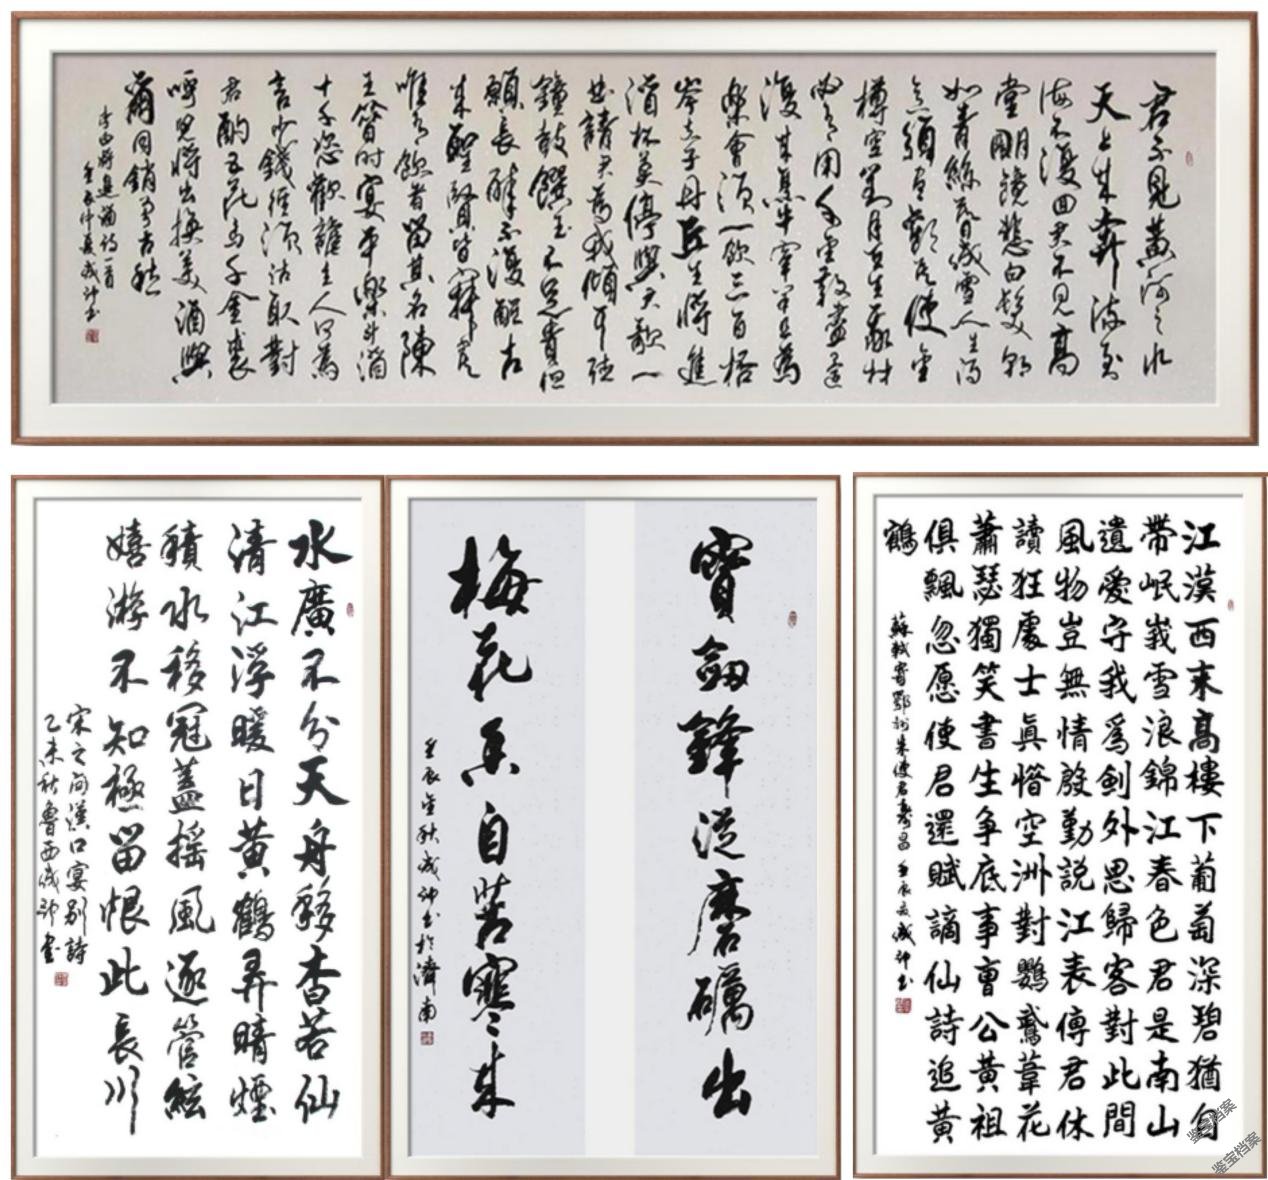 君不見黃河之水
天上來奔流到
海不復回君不見高
堂明鏡悲白髮朝
如青絲暮成雪人生得
意須盡歡莫使金
樽空對月天生我材
必有用千金散盡還
復來烹羊宰牛且為
樂會須一飲三百杯
岑夫子丹丘生將進
酒杯莫停與君歌一
曲請君為我傾耳聽
鐘鼓饌玉不足貴但
願長醉不復醒古
來聖賢皆寂寞
唯有飲者留其名陳
王昔時宴平樂斗酒
十千恣歡謔主人何為
言少錢徑須沽取對
君酌五花馬千金裘
呼兒將出換美酒與
爾同銷萬古愁
李白將進酒詩一首
壬辰仲夏成書
水廣不分天舟移杳若仙
清江浮暖日黃鶴弄晴煙
積水移冠蓋搖風逐管絃
嬉游不知極留恨此長川
宋之問漢口宴別詩
乙未秋魯西成書
寶劍鋒從磨礪出
梅花香自苦寒來
壬辰金秋成書於濟南
江漢西來高樓下葡萄深碧猶自
帶岷峨雪浪錦江春色君是南山
遺愛守我為劍外思歸客對此間
風物豈無情殷勤說江表傳君休
讀狂處士真惜空洲對鸚鵡葦花
蕭瑟獨笑書生爭底事曹公黃祖
俱飄忽愿使君還賦謫仙詩追黃
鶴
蘇軾寄鄂州朱使君壽昌 壬辰夏成書
鉴宝档案
鉴宝档案